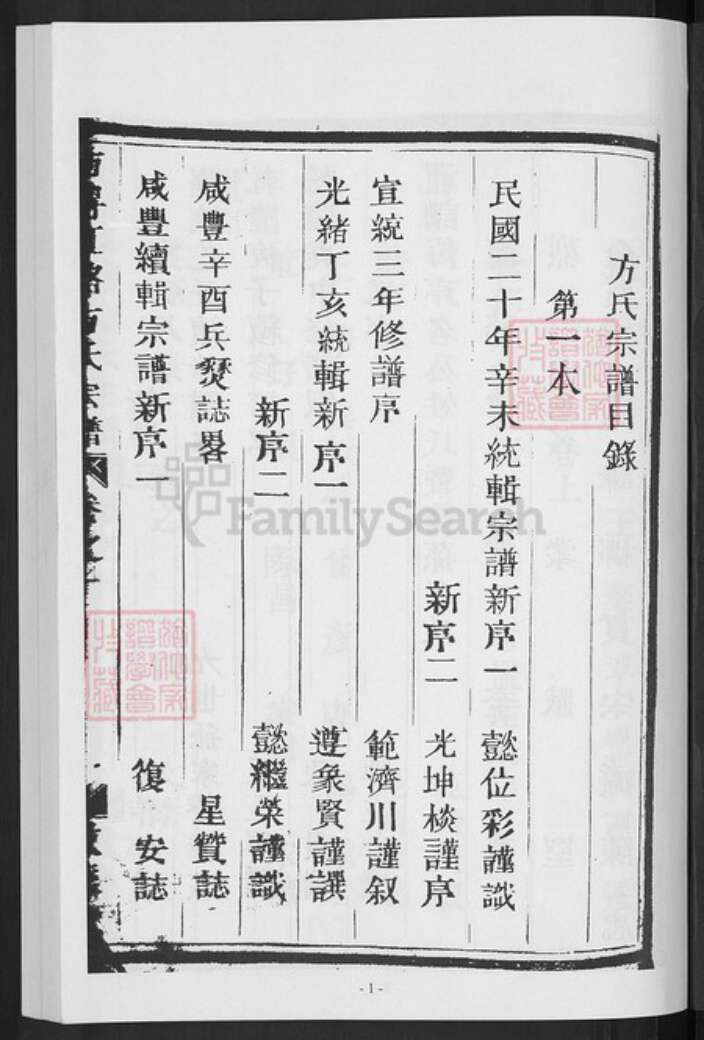 方氏宗譜目錄
第一本
民國二十年辛未統輯宗譜新序一 懿位彩謹識
新序二 光坤棪謹序
宣統三年修譜序 範濟川謹叙
光緒丁亥統輯新序一 遵象賢謹譔
新序二 懿繼荣謹識
咸豐辛酉兵燹誌畧 星贊誌
咸豐續輯宗譜新序一 復安誌
方氏宗譜
FamilySearch
- 1 -